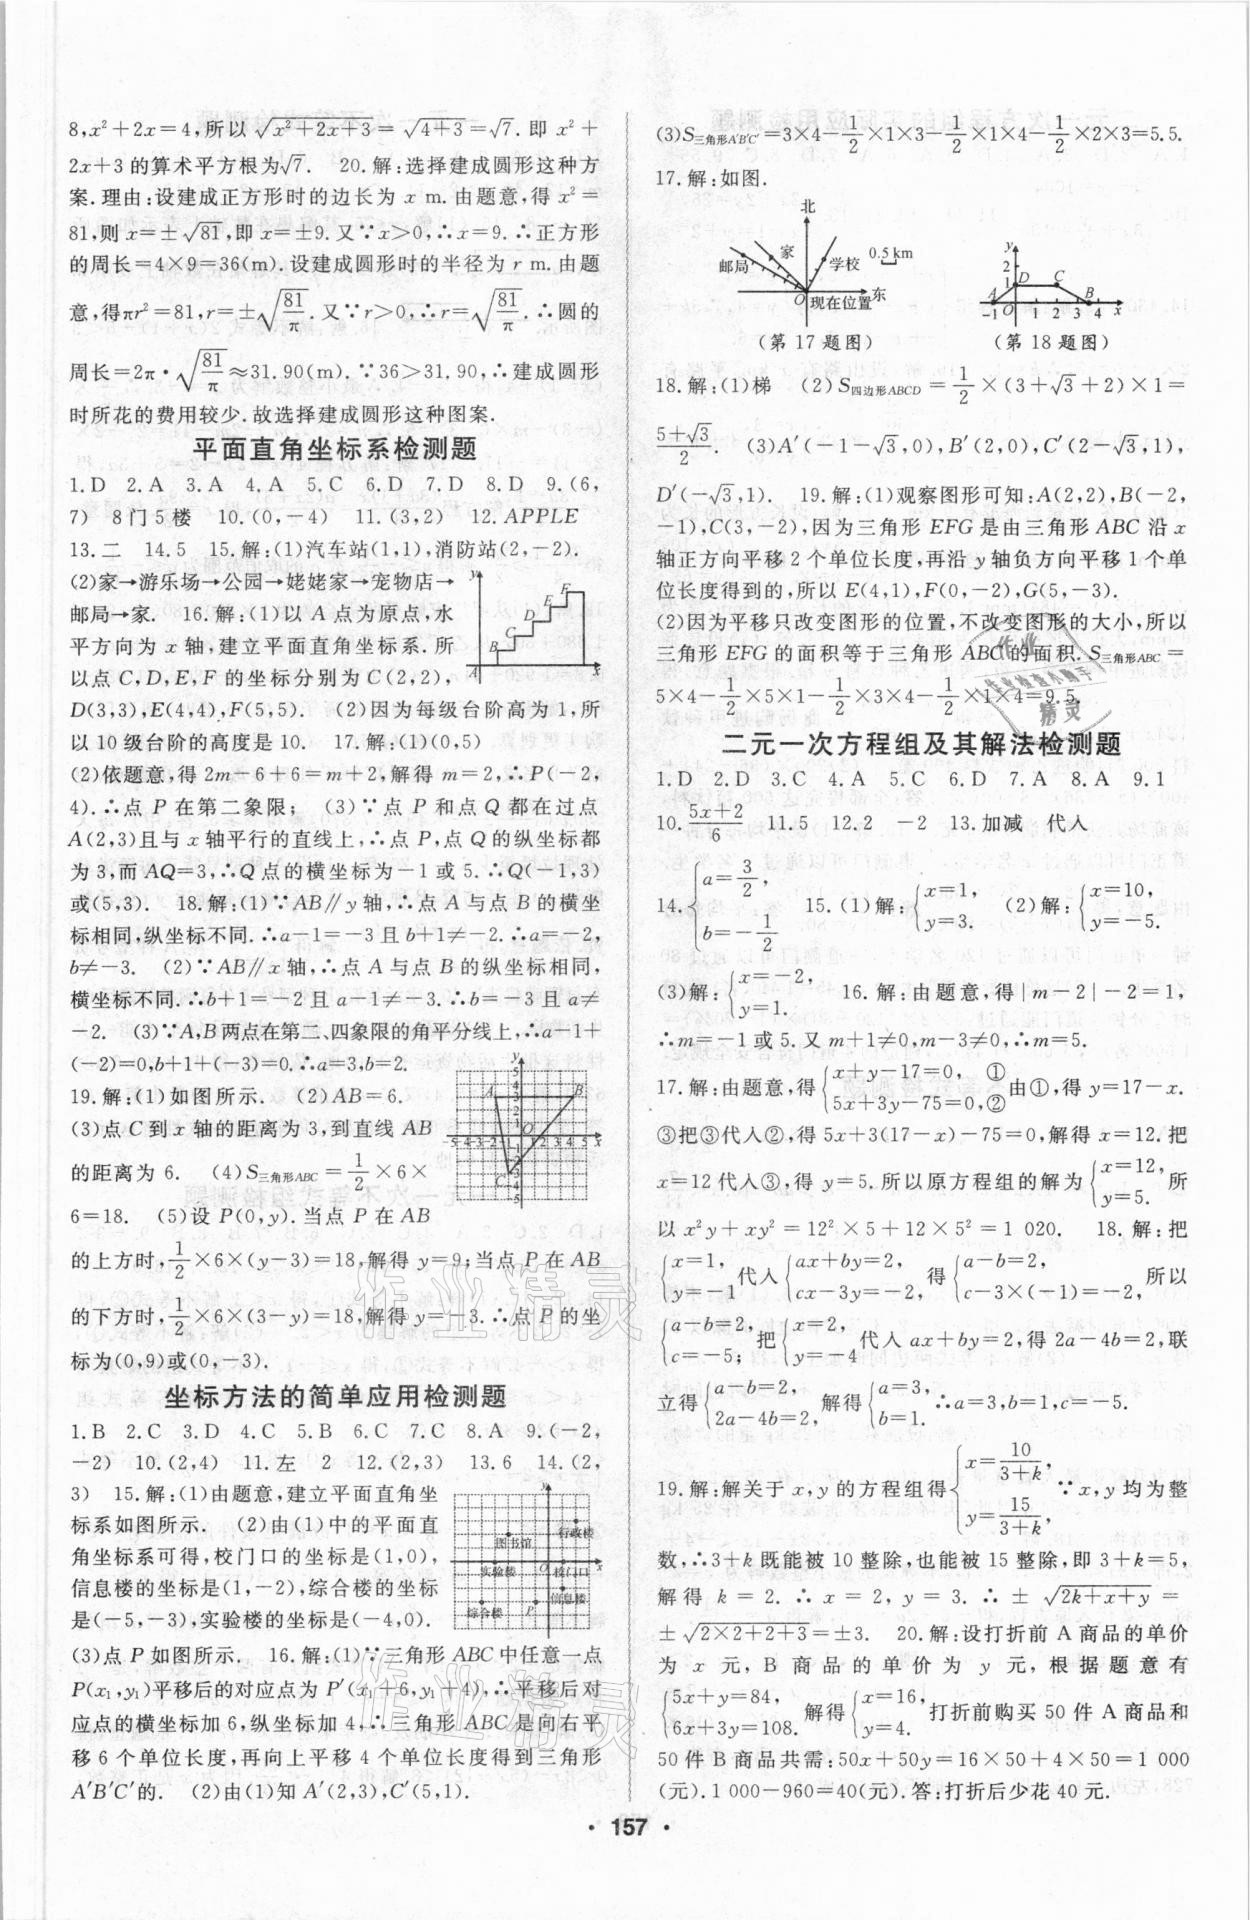 8,x²+2x=4,所以√(x²+2x+3)=√(4+3)=√7. 即 x²+
2x+3 的算术平方根为√7. 20.解:选择建成圆形这种方
案.理由:设建成正方形时的边长为 x m.由题意,得 x²=
81,则 x=±√81,即 x=±9.又∵x>0,∴x=9.∴正方形
的周长=4×9=36(m).设建成圆形时的半径为 r m.由题
意,得πr²=81,r=±√(81/π). 又∵r>0,∴r=√(81/π). ∴圆的
周长=2π·√(81/π)≈31.90(m).∵36>31.90,∴建成圆形
时所花的费用较少.故选择建成圆形这种图案.
平面直角坐标系检测题
1.D 2.A 3.A 4.A 5.C 6.D 7.D 8.D 9.(6,
7) 8门5楼 10.(0,-4) 11.(3,2) 12.APPLE
13.二 14.5 15.解:(1)汽车站(1,1),消防站(2,-2).
(2)家→游乐场→公园→姥姥家→宠物店→
邮局→家. 16.解:(1)以 A 点为原点,水
平方向为 x 轴,建立平面直角坐标系.所
以点 C,D,E,F 的坐标分别为 C(2,2),
D(3,3),E(4,4),F(5,5). (2)因为每级台阶高为 1,所
以 10 级台阶的高度是 10. 17.解:(1)(0,5)
(2)依题意,得 2m-6+6=m+2,解得 m=2,∴P(-2,
4).∴点 P 在第二象限; (3)∵点 P 和点 Q 都在过点
A(2,3)且与 x 轴平行的直线上,∴点 P,点 Q 的纵坐标都
为 3,而 AQ=3,∴点 Q 的横坐标为-1 或 5.∴Q(-1,3)
或(5,3). 18.解:(1)∵AB∥y 轴,∴点 A 与点 B 的横坐
标相同,纵坐标不同.∴a-1=-3且 b+1≠-2.∴a=-2,
b≠-3. (2)∵AB∥x 轴,∴点 A 与点 B 的纵坐标相同,
横坐标不同.∴b+1=-2 且 a-1≠-3.∴b=-3 且 a≠
-2. (3)∵A,B两点在第二、四象限的角平分线上,∴a-1+
(-2)=0,b+1+(-3)=0.∴a=3,b=2.
19.解:(1)如图所示. (2)AB=6.
(3)点 C 到 x 轴的距离为 3,到直线 AB
的距离为 6. (4)S三角形ABC=1/2×6×
6=18. (5)设 P(0,y).当点 P 在 AB
的上方时,1/2×6×(y-3)=18,解得 y=9;当点 P 在 AB
的下方时,1/2×6×(3-y)=18,解得 y=-3.∴点 P 的坐
标为(0,9)或(0,-3).
坐标方法的简单应用检测题
1.B 2.C 3.D 4.C 5.B 6.C 7.C 8.A 9.(-2,
-2) 10.(2,4) 11.左 2 12.(2,3) 13.6 14.(2,
3) 15.解:(1)由题意,建立平面直角坐
标系如图所示. (2)由(1)中的平面直
角坐标系可得,校门口的坐标是(1,0),
信息楼的坐标是(1,-2),综合楼的坐标
是(-5,-3),实验楼的坐标是(-4,0).
(3)点 P 如图所示. 16.解:(1)∵三角形 ABC 中任意一点
P(x₁,y₁)平移后的对应点为 P′(x₁+6,y₁+4),∴平移后对
应点的横坐标加 6,纵坐标加 4,∴三角形 ABC 是向右平
移 6 个单位长度,再向上平移 4 个单位长度得到三角形
A′B′C′的. (2)由(1)知 A′(2,3),C′(5,1).
(3)S三角形A′B′C′=3×4-1/2×1×3-1/2×1×4-1/2×2×3=5.5.
17.解:如图.
北
邮局 家 学校 0.5 km
O 现在位置 东
(第 17 题图) (第 18 题图)
18.解:(1)梯 (2)S四边形ABCD=1/2×(3+√3+2)×1=
(5+√3)/2. (3)A′(-1-√3,0),B′(2,0),C′(2-√3,1),
D′(-√3,1). 19.解:(1)观察图形可知:A(2,2),B(-2,
-1),C(3,-2),因为三角形 EFG 是由三角形 ABC 沿 x
轴正方向平移 2 个单位长度,再沿 y 轴负方向平移 1 个单
位长度得到的,所以 E(4,1),F(0,-2),G(5,-3).
(2)因为平移只改变图形的位置,不改变图形的大小,所以
三角形 EFG 的面积等于三角形 ABC 的面积.S三角形ABC=
5×4-1/2×5×1-1/2×3×4-1/2×1×4=9.5.
二元一次方程组及其解法检测题
1.D 2.D 3.C 4.A 5.C 6.D 7.A 8.A 9.1
10.(5x+2)/6 11.5 12.2 -2 13.加减 代入
14.{a=3/2, b=-1/2 15.(1)解:{x=1, y=3. (2)解:{x=10, y=-5.
(3)解:{x=-2, y=1. 16.解:由题意,得|m-2|-2=1,
∴m=-1或 5.又 m+1≠0,m-3≠0,∴m=5.
17.解:由题意,得{x+y-17=0, ① 5x+3y-75=0,② 由①,得 y=17-x.
③把③代入②,得 5x+3(17-x)-75=0,解得 x=12.把
x=12代入③,得 y=5.所以原方程组的解为{x=12, y=5. 所
以 x²y+xy²=12²×5+12×5²=1 020. 18.解:把
{x=1, y=-1 代入{ax+by=2, cx-3y=-2, 得{a-b=2, c-3×(-1)=-2, 所以
{a-b=2, c=-5; 把{x=2, y=-4 代入 ax+by=2,得 2a-4b=2,联
立得{a-b=2, 2a-4b=2, 解得{a=3, b=1. ∴a=3,b=1,c=-5.
19.解:解关于 x,y 的方程组得{x=10/(3+k), y=15/(3+k). ∵x,y 均为整
数,∴3+k 既能被 10 整除,也能被 15 整除,即 3+k=5,
解得 k=2.∴x=2,y=3.∴±√(2k+x+y)=
±√(2×2+2+3)=±3. 20.解:设打折前 A 商品的单价
为 x 元,B 商品的单价为 y 元,根据题意有
{5x+y=84, 6x+3y=108. 解得{x=16, y=4. 打折前购买 50 件 A 商品和
50 件 B 商品共需:50x+50y=16×50+4×50=1 000
(元).1 000-960=40(元).答:打折后少花 40 元.
· 157 ·